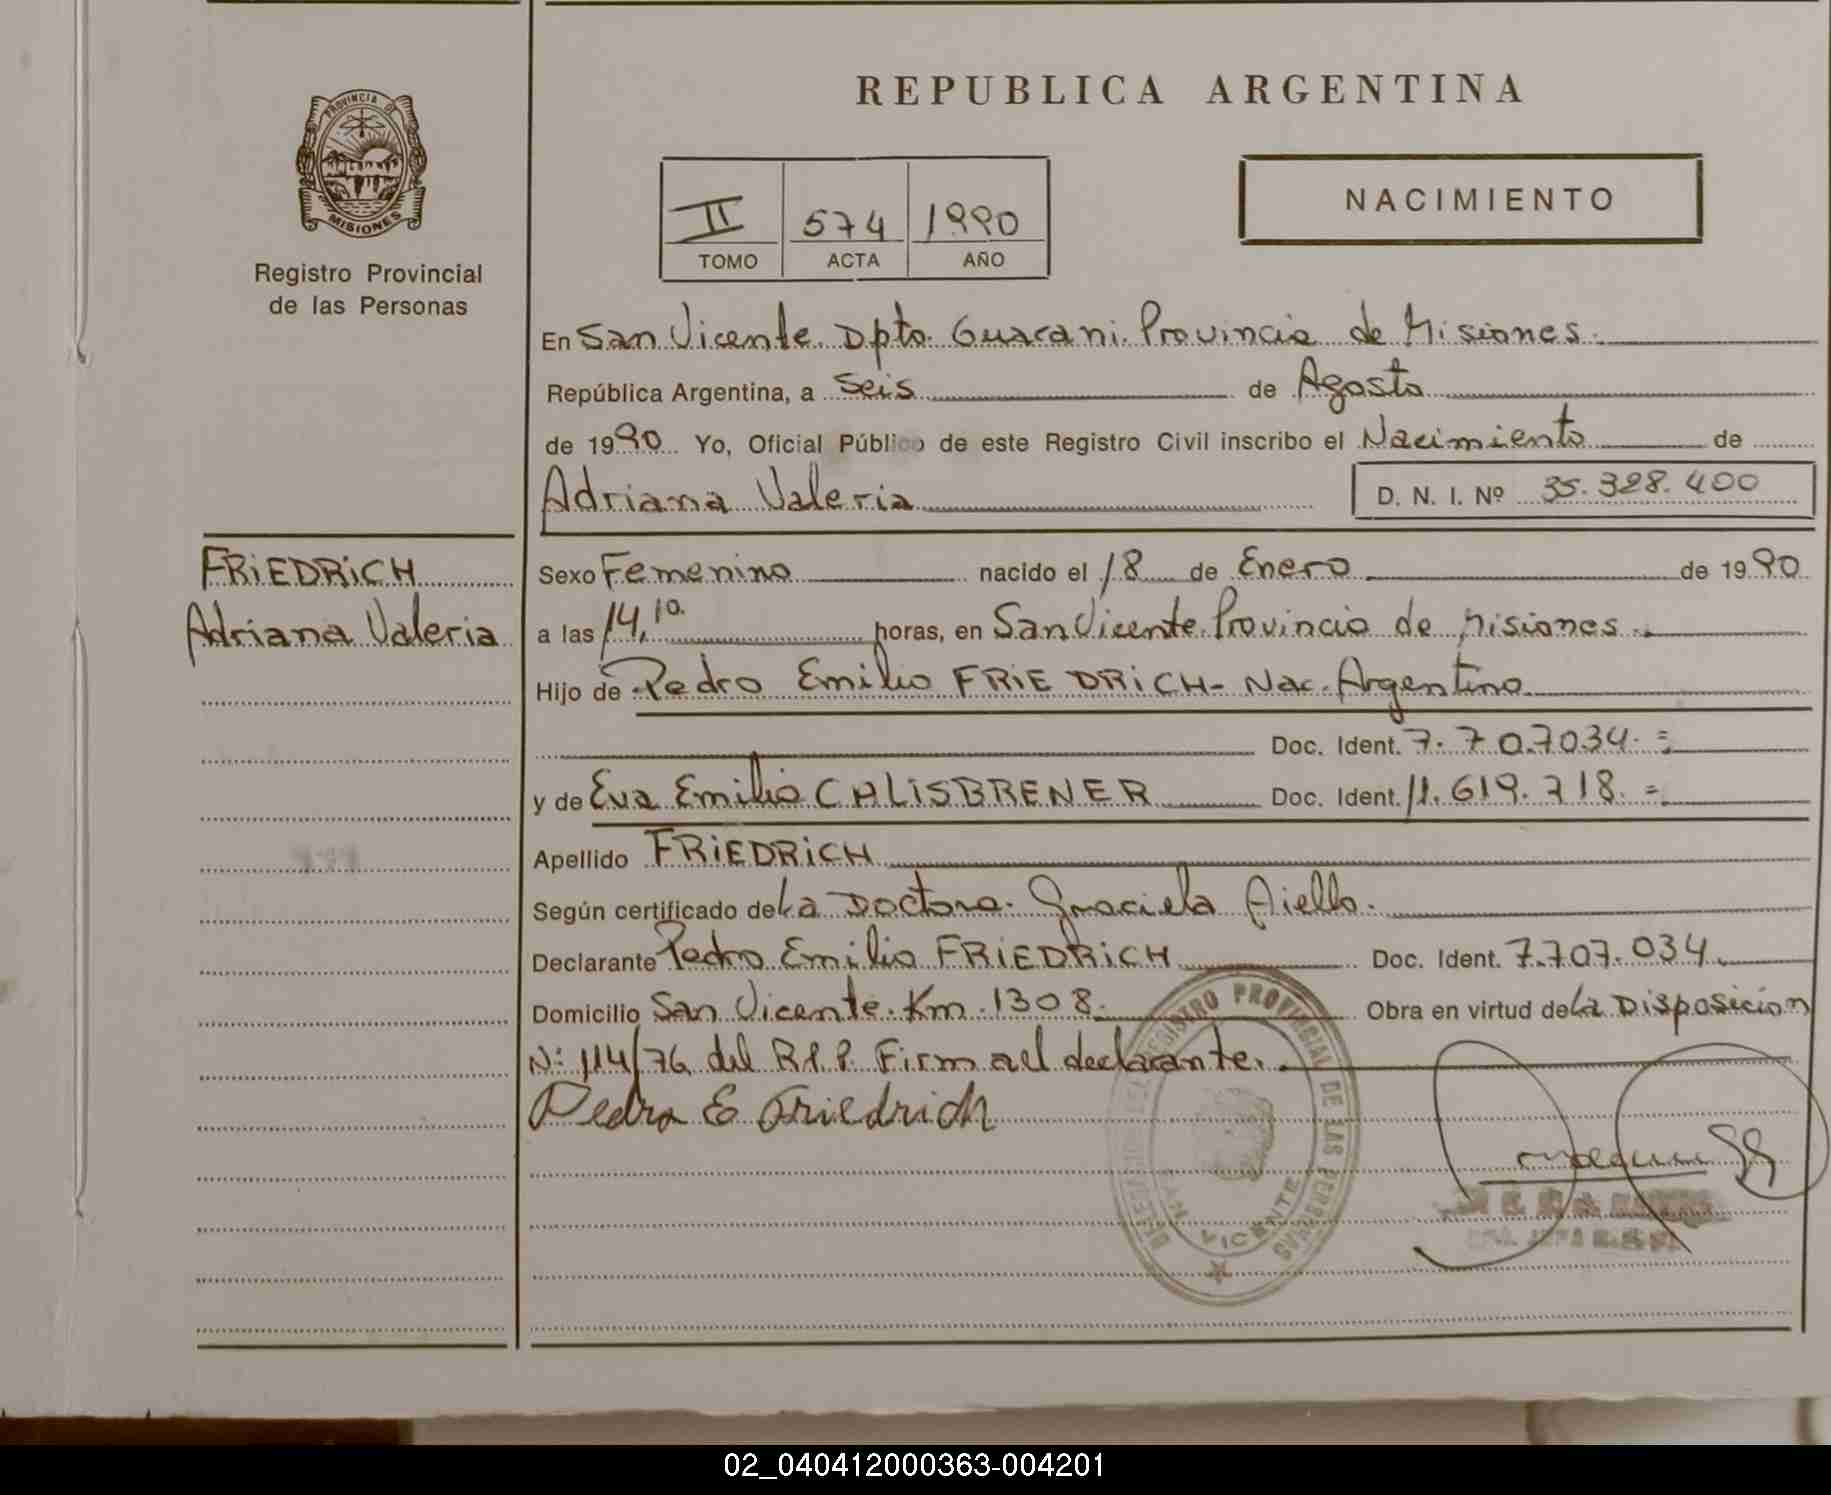 REPUBLICA ARGENTINA
PROVINCIA DE
MISIONES
Registro Provincial
de las Personas
NACIMIENTO
II 574 1990
TOMO ACTA AÑO
En San Vicente. Dpto. Guarani. Provincia de Misiones.
República Argentina, a Seis de Agosto
de 1990 Yo, Oficial Público de este Registro Civil inscribo el Nacimiento de
Adriana Valeria D. N. I. Nº 35.328.400
FRiEDRiCH
Adriana Valeria
Sexo Femenino nacido el 18 de Enero de 1990
a las 14,10. horas, en San Vicente. Provincia de Misiones.
Hijo de Pedro Emilio FRIEDRiCH - Nac. Argentino
Doc. Ident. 7.707034.=
y de Eva Emilia CHLiSBRENER Doc. Ident. 11.619.718.=
Apellido FRiEDRiCH
Según certificado de La Doctora. Graciela Aiello.
Declarante Pedro Emilio FRiEDRiCH Doc. Ident. 7.707.034.
Domicilio San Vicente. Km. 1308. Obra en virtud de La Disposición
N: 114/76 del R.P.P. Firma el declarante.
Pedro E Friedrich
REGISTRO PROVINCIAL DE LAS PERSONAS
SAN VICENTE
02_040412000363-004201